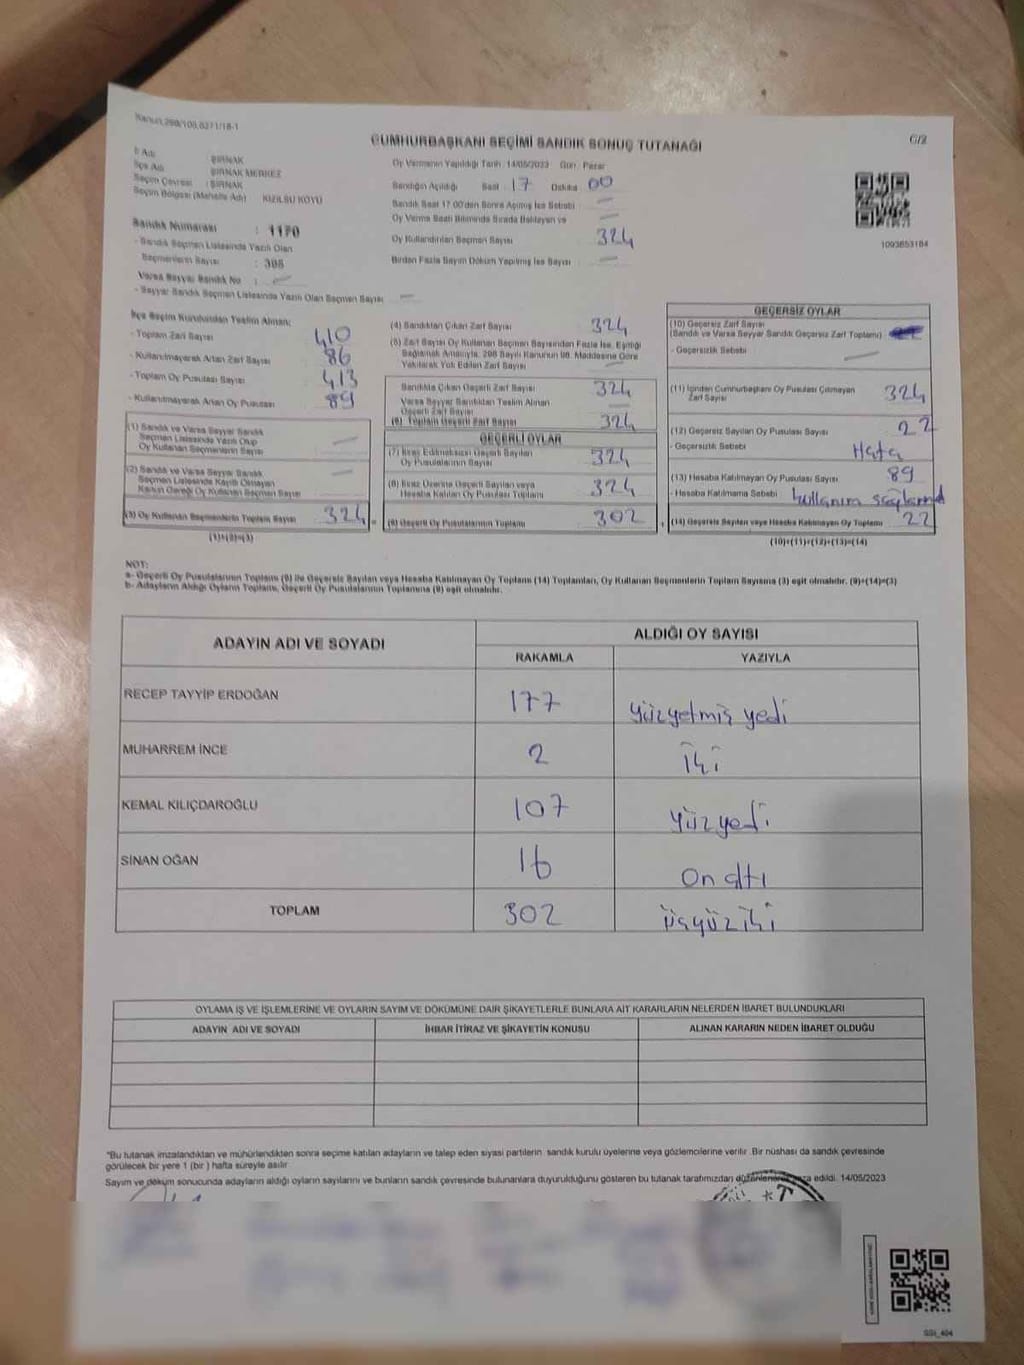 Kanun 298/105,6271/18-1
CUMHURBAŞKANI SEÇİMİ SANDIK SONUÇ TUTANAĞI
İl Adı : ŞIRNAK
İlçe Adı : ŞIRNAK MERKEZ
Seçim Çevresi : ŞIRNAK
Seçim Bölgesi (Mahalle Adı) KIZILSU KÖYÜ
Sandık Numarası : 1170
- Sandık Seçmen Listesinde Yazılı Olan
Seçmenlerin Sayısı : 395
Varsa Seyyar Sandık No : —
- Seyyar Sandık Seçmen Listesinde Yazılı Olan Seçmen Sayısı —
Oy Vermenin Yapıldığı Tarih 14/05/2023 Gün Pazar
Sandığın Açıldığı Saat 17 Dakika 00
Sandık Saat 17.00'den Sonra Açılmış İse Sebebi —
Oy Verme Saati Bitiminde Sırada Bekleyen ve —
Oy Kullandırılan Seçmen Sayısı 324
Birden Fazla Sayım Döküm Yapılmış İse Sayısı —
1093653184
İlçe Seçim Kurulundan Teslim Alınan;
- Toplam Zarf Sayısı 410
- Kullanılmayarak Artan Zarf Sayısı 86
- Toplam Oy Pusulası Sayısı 413
- Kullanılmayarak Artan Oy Pusulası 89
(1) Sandık ve Varsa Seyyar Sandık
Seçmen Listesinde Yazılı Olup
Oy Kullanan Seçmenlerin Sayısı —
(2) Sandık ve Varsa Seyyar Sandık
Seçmen Listesinde Kayıtlı Olmayan
Kanun Gereği Oy Kullanan Seçmen Sayısı —
(3) Oy Kullanan Seçmenlerin Toplam Sayısı 324
(1)+(2)=(3)
(4) Sandıktan Çıkan Zarf Sayısı 324
(5) Zarf Sayısı Oy Kullanan Seçmen Sayısından Fazla İse, Eşitliği
Sağlamak Amacıyla, 298 Sayılı Kanunun 98. Maddesine Göre
Yakılarak Yok Edilen Zarf Sayısı —
Sandıkta Çıkan Geçerli Zarf Sayısı 324
Varsa Seyyar Sandıktan Teslim Alınan
Geçerli Zarf Sayısı —
(6) Toplam Geçerli Zarf Sayısı 324
GEÇERLİ OYLAR
(7) İtiraz Edilmeksizin Geçerli Sayılan
Oy Pusulalarının Sayısı 324
(8) İtiraz Üzerine Geçerli Sayılan veya
Hesaba Katılan Oy Pusulası Toplamı 324
(9) Geçerli Oy Pusulalarının Toplamı 302
GEÇERSİZ OYLAR
(10) Geçersiz Zarf Sayısı
(Sandık ve Varsa Seyyar Sandık Geçersiz Zarf Toplamı)
- Geçersizlik Sebebi —
(11) İçinden Cumhurbaşkanı Oy Pusulası Çıkmayan
Zarf Sayısı 324
(12) Geçersiz Sayılan Oy Pusulası Sayısı 22
- Geçersizlik Sebebi Hata
(13) Hesaba Katılmayan Oy Pusulası Sayısı 89
- Hesaba Katılmama Sebebi kullanım
(14) Geçersiz Sayılan veya Hesaba Katılmayan Oy Toplamı 22
(10)+(11)+(12)+(13)=(14)
NOT:
a- Geçerli Oy Pusulalarının Toplamı (9) ile Geçersiz Sayılan veya Hesaba Katılmayan Oy Toplamı (14) Toplamları, Oy Kullanan Seçmenlerin Toplam Sayısına (3) eşit olmalıdır. (9)+(14)=(3)
b- Adayların Aldığı Oyların Toplamı, Geçerli Oy Pusulalarının Toplamına (9) eşit olmalıdır.
ADAYIN ADI VE SOYADI ALDIĞI OY SAYISI
RAKAMLA YAZIYLA
RECEP TAYYİP ERDOĞAN 177 yüzyetmiş yedi
MUHARREM İNCE 2 İki
KEMAL KILIÇDAROĞLU 107 yüzyedi
SİNAN OĞAN 16 On altı
TOPLAM 302 üçyüziki
OYLAMA İŞ VE İŞLEMLERİNE VE OYLARIN SAYIM VE DÖKÜMÜNE DAİR ŞİKAYETLERLE BUNLARA AİT KARARLARIN NELERDEN İBARET BULUNDUKLARI
ADAYIN ADI VE SOYADI İHBAR İTİRAZ VE ŞİKAYETİN KONUSU ALINAN KARARIN NEDEN İBARET OLDUĞU
*Bu tutanak imzalandıktan ve mühürlendikten sonra seçime katılan adayların ve talep eden siyasi partilerin sandık kurulu üyelerine veya gözlemcilerine verilir. Bir nüshası da sandık çevresinde
görülecek bir yere 1 (bir) hafta süreyle asılır.
Sayım ve döküm sonucunda adayların aldığı oyların sayılarını ve bunların sandık çevresinde bulunanlara duyurulduğunu gösteren bu tutanak tarafımızdan düzenlenerek imza edildi. 14/05/2023